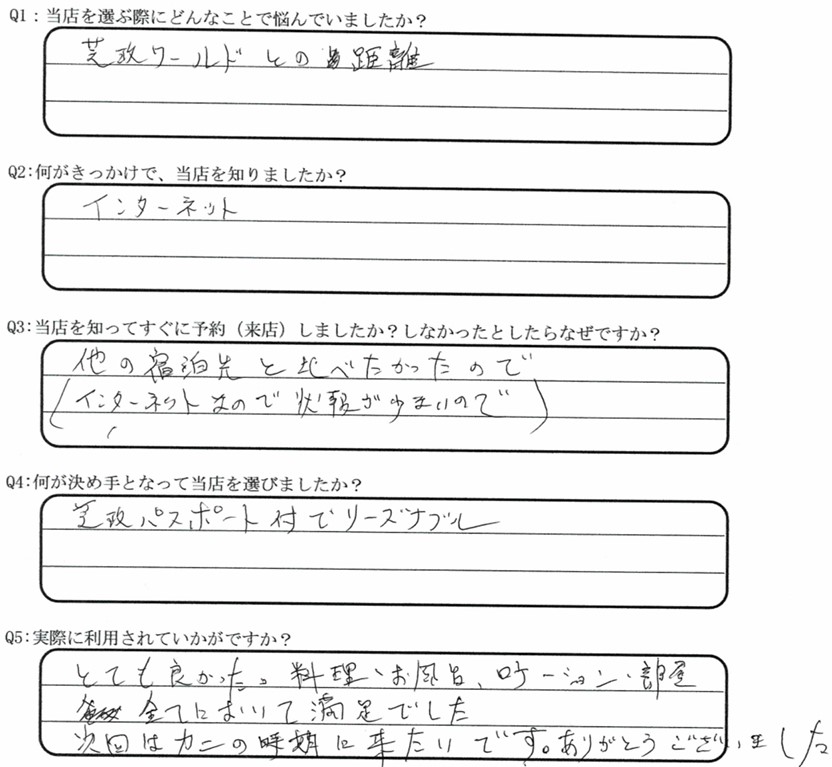 Q1：当店を選ぶ際にどんなことで悩んでいましたか？
芝政ワールドとの距離
Q2：何がきっかけで、当店を知りましたか？
インターネット
Q3：当店を知ってすぐに予約（来店）しましたか？しなかったとしたらなぜですか？
他の宿泊先と比べたかったので
（インターネットなので状報が少まいので）
Q4：何が決め手となって当店を選びましたか？
芝政パスポート付でリーズナブル
Q5：実際に利用されていかがですか？
とても良かった。料理、お風呂、ロケーション、部屋
全てにおいて満足でした
次回はカニの時期に来たいです。ありがとうございました